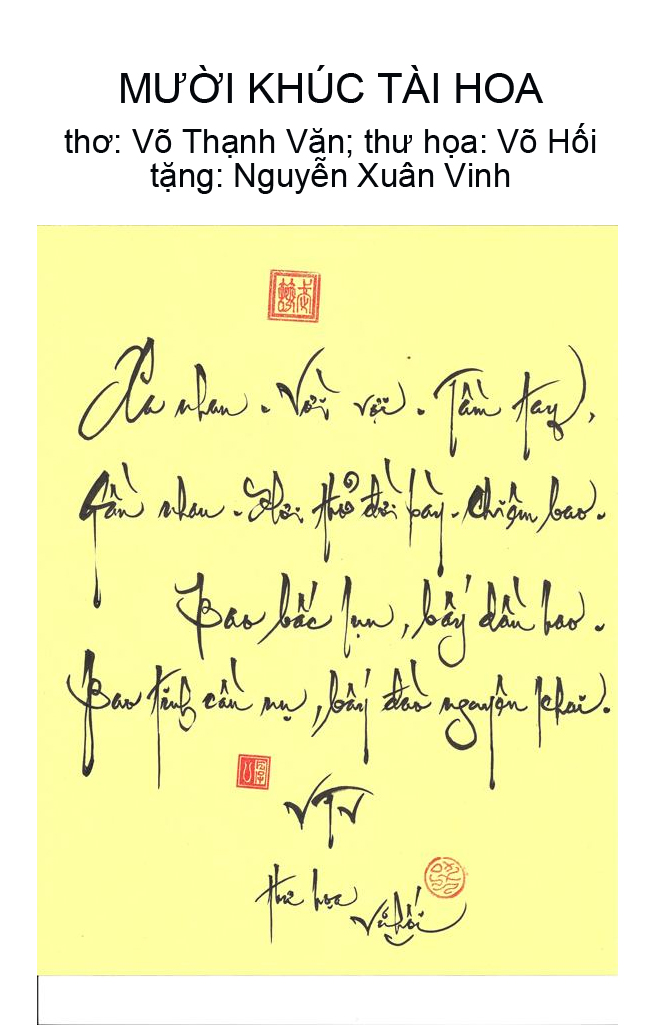 MƯỜI KHÚC TÀI HOA
thơ: Võ Thạnh Văn; thư họa: Võ Hối
tặng: Nguyễn Xuân Vinh
Xa nhau. Vời vợi. Tầm tay,
Gần nhau. Hơi thở đời bày. Chiêm bao.
Bao bấc lụn, bấy dầu hao.
Bao tình cần nụ, bấy đào nguyên khai.
VTV
thư họa Vũ Hối